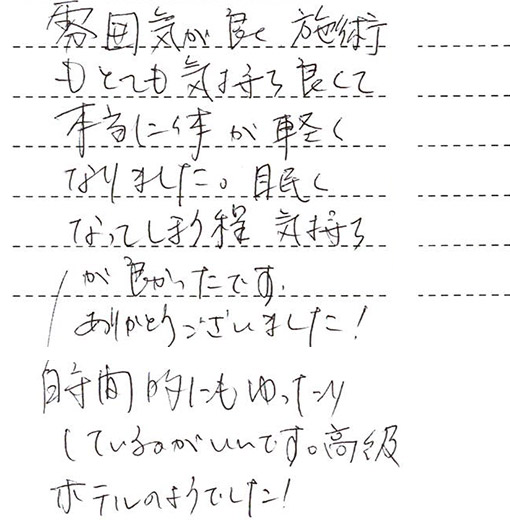 雰囲気が良く 施術
もとても気持ち良くて
本当に体が軽く
なりました。眠く
なってしまう程 気持ち
が良かったです.
ありがとうございました!
時間的にもゆったり
しているのがいいです。高級
ホテルのようでした!